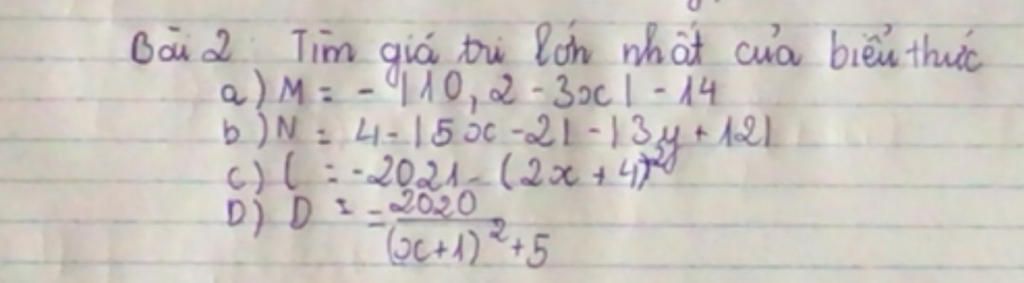 Bài 2: Tìm giá trị lớn nhất của biểu thức
a) M = - |10,2 - 3x| - 14
b) N = 4 - |5x - 2| - |3y + 12|
c) C = -2021 - (2x + 4)²
D) D = -2020 / (x+1)² + 5